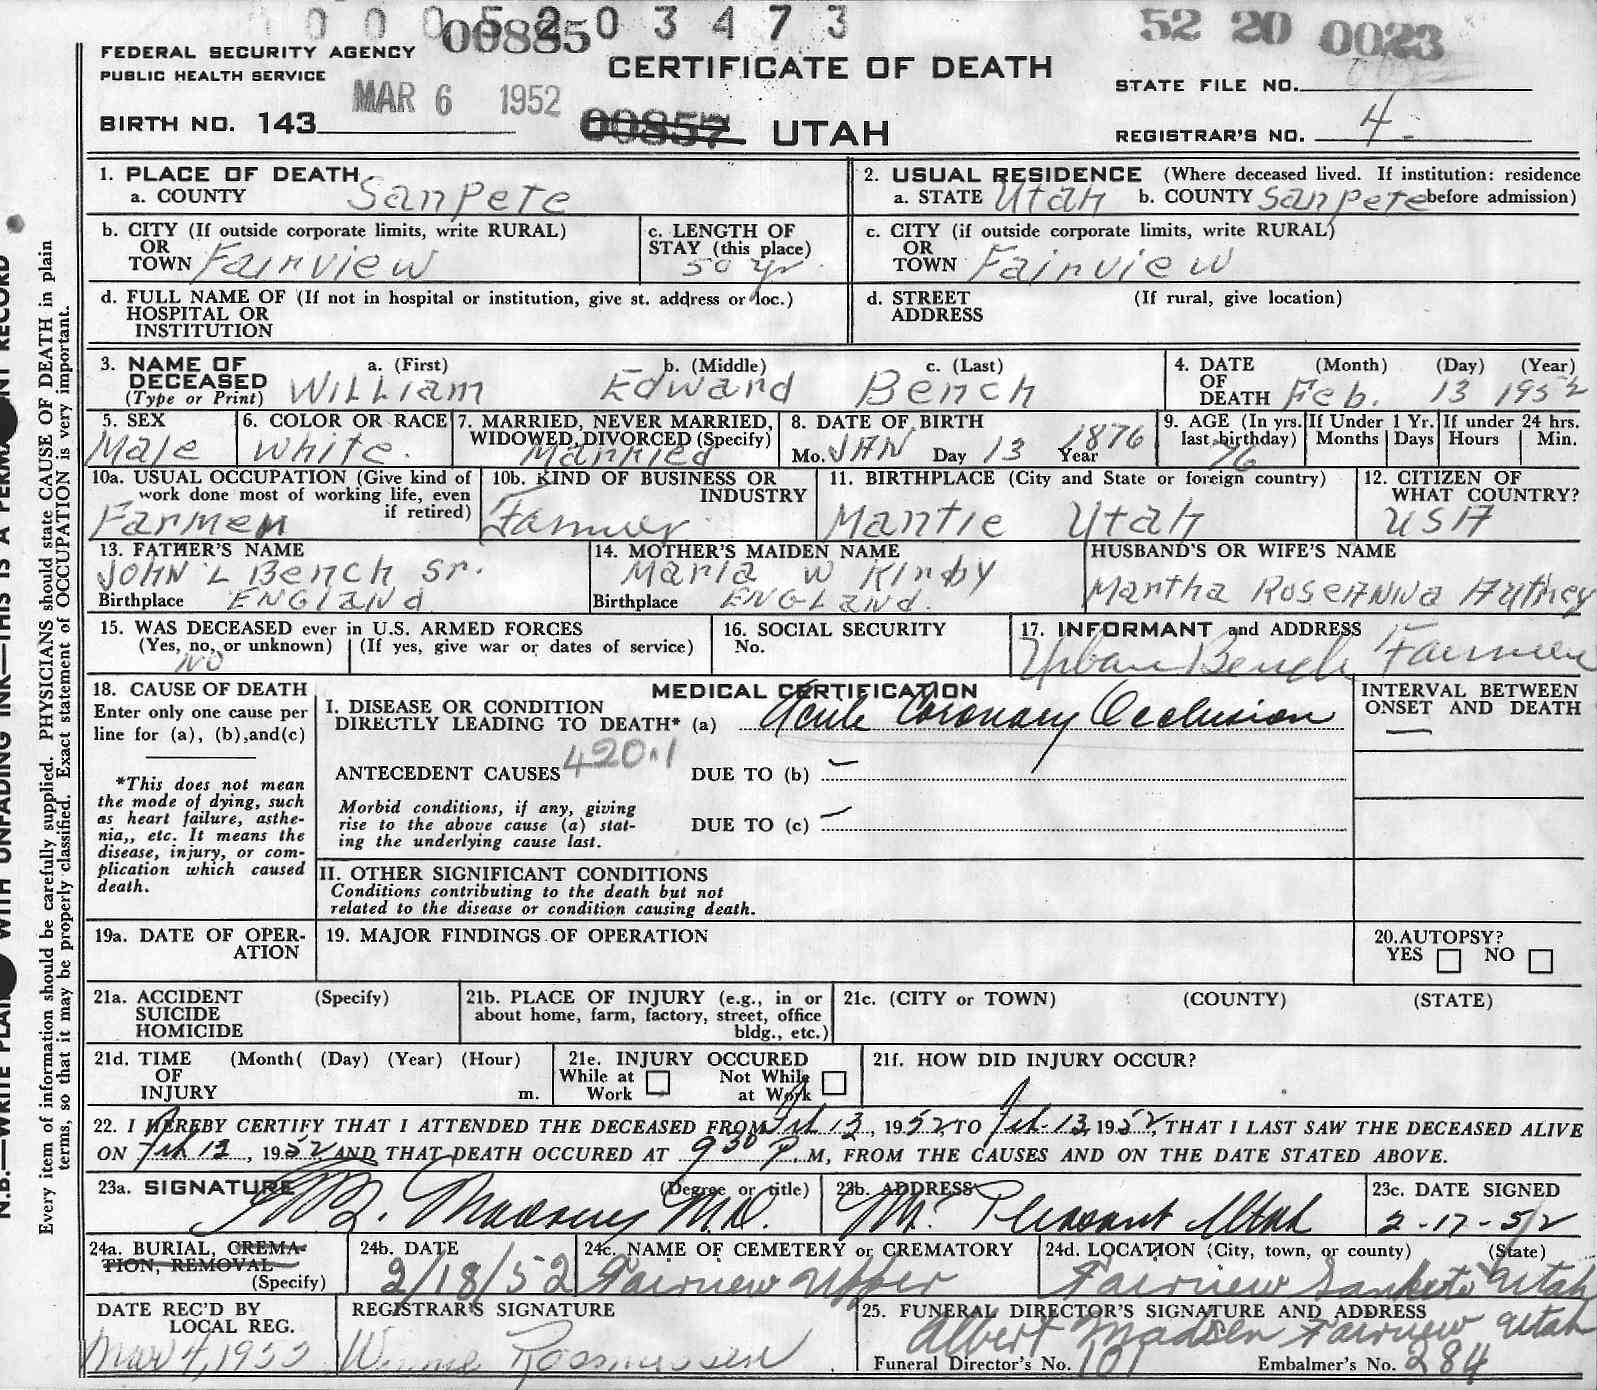 0 0 0 5 2 0 3 4 7 3
00885
52 20 0023
FEDERAL SECURITY AGENCY
PUBLIC HEALTH SERVICE
MAR 6 1952
CERTIFICATE OF DEATH
STATE FILE NO.
BIRTH NO. 143
00857 UTAH
REGISTRAR'S NO. 4
1. PLACE OF DEATH
a. COUNTY Sanpete
2. USUAL RESIDENCE (Where deceased lived. If institution: residence
a. STATE Utah b. COUNTY Sanpete before admission)
b. CITY (If outside corporate limits, write RURAL)
OR
TOWN Fairview
c. LENGTH OF
STAY (this place)
50 yr.
c. CITY (if outside corporate limits, write RURAL)
OR
TOWN Fairview
d. FULL NAME OF (If not in hospital or institution, give st. address or loc.)
HOSPITAL OR
INSTITUTION
d. STREET (If rural, give location)
ADDRESS
3. NAME OF DECEASED (Type or Print)
a. (First) b. (Middle) c. (Last)
William Edward Bench
4. DATE OF DEATH (Month) (Day) (Year)
Feb. 13 1952
5. SEX
Male
6. COLOR OR RACE
White.
7. MARRIED, NEVER MARRIED,
WIDOWED, DIVORCED (Specify)
Married
8. DATE OF BIRTH
Mo. JAN Day 13 Year 1876
9. AGE (In yrs. last birthday)
76
If Under 1 Yr.
Months Days
If under 24 hrs.
Hours Min.
10a. USUAL OCCUPATION (Give kind of
work done most of working life, even
if retired)
Farmer
10b. KIND OF BUSINESS OR
INDUSTRY
Farmer
11. BIRTHPLACE (City and State or foreign country)
Mantie Utah
12. CITIZEN OF
WHAT COUNTRY?
USA
13. FATHER'S NAME
John L Bench Sr.
Birthplace ENGLAND
14. MOTHER'S MAIDEN NAME
Maria W Kirby
Birthplace ENGLAND.
HUSBAND'S OR WIFE'S NAME
Martha
15. WAS DECEASED ever in U.S. ARMED FORCES
(Yes, no, or unknown) (If yes, give war or dates of service)
NO
16. SOCIAL SECURITY
No.
17. INFORMANT and ADDRESS
Urban Bench
18. CAUSE OF DEATH
Enter only one cause per
line for (a), (b), and (c)
*This does not mean
the mode of dying, such
as heart failure, asthe-
nia,, etc. It means the
disease, injury, or com-
plication which caused
death.
MEDICAL CERTIFICATION
I. DISEASE OR CONDITION
DIRECTLY LEADING TO DEATH* (a) Acute Coronary Occlusion
ANTECEDENT CAUSES 420.1 DUE TO (b) –
Morbid conditions, if any, giving
rise to the above cause (a) stat-
ing the underlying cause last.
DUE TO (c) –
II. OTHER SIGNIFICANT CONDITIONS
Conditions contributing to the death but not
related to the disease or condition causing death.
INTERVAL BETWEEN
ONSET AND DEATH
—
19a. DATE OF OPER-
ATION
19. MAJOR FINDINGS OF OPERATION
20. AUTOPSY?
YES NO
21a. ACCIDENT (Specify)
SUICIDE
HOMICIDE
21b. PLACE OF INJURY (e.g., in or
about home, farm, factory, street, office
bldg., etc.)
21c. (CITY or TOWN) (COUNTY) (STATE)
21d. TIME (Month( (Day) (Year) (Hour)
OF
INJURY m.
21e. INJURY OCCURED
While at Work Not While at Work
21f. HOW DID INJURY OCCUR?
22. I HEREBY CERTIFY THAT I ATTENDED THE DECEASED FROM Feb 13, 1952, TO Feb-13, 1952, THAT I LAST SAW THE DECEASED ALIVE
ON Feb 13, 1952 AND THAT DEATH OCCURED AT 9 30 P. M, FROM THE CAUSES AND ON THE DATE STATED ABOVE.
23a. SIGNATURE (Degree or title)
M.D.
23b. ADDRESS
Mt. Pleasant Utah
23c. DATE SIGNED
2-17-52
24a. BURIAL, CREMA-
TION, REMOVAL
(Specify)
24b. DATE
2/18/52
24c. NAME OF CEMETERY or CREMATORY
Fairview Upper
24d. LOCATION (City, town, or county) (State)
Fairview Sanpete Utah
DATE REC'D BY
LOCAL REG.
Mar 4, 1952
REGISTRAR'S SIGNATURE
Rasmussen
25. FUNERAL DIRECTOR'S SIGNATURE AND ADDRESS
Albert Madsen Fairview Utah
Funeral Director's No. 101 Embalmer's No. 284
N.B.—WRITE WITH UNFADING INK—THIS IS A RECORD
Every item of information should be carefully supplied. PHYSICIANS should state CAUSE OF DEATH in plain
terms, so that it may be properly classified. Exact statement of OCCUPATION is very important.